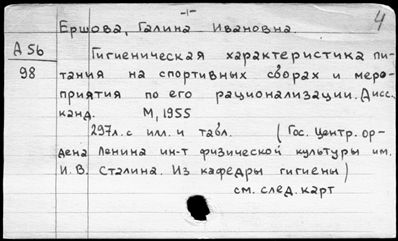 -1-
4
Ершова, Галина Ивановна.
А 56
98
Гигиеническая характеристика пи-
тания на спортивных сборах и меро-
приятия по его рационализации. Дисс.
канд. М, 1955
297л. с илл. и табл. (Гос. Центр. ор-
дена Ленина ин-т физической культуры им.
И.В. Сталина. Из кафедры гигиены)
см. след. карт